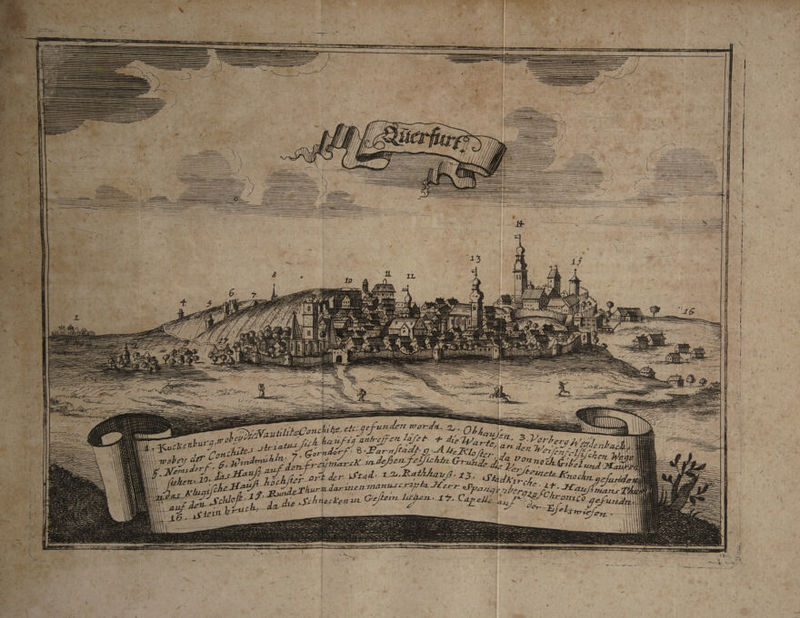 Querfurt.
14
13
15
8
10
11
12
4
5
6
7
2
16
1. Kuckenburg, wobey die Nautilitæ Conchitæ, etc. gefunden wordn. 2. Obhausen. 3. Vorberg Weydenbach,
wobey der Conchites striatus sich haufig antreffen läset 4 die Warte, an den Weisenfelsischen Wege
5. Nemsdorf. 6. Windmühln. 7. Gorndorf. 8. Farnstädt 9. Alte Kloster, da von noch Gibel und Mauren
stehen. 10. das Hauß auf den freymarck in deßen felsichtn Grunde die Versteinete Knochn gefunden
11. das Klugische Hauß höchster ort der Stad. 12. Rathhauß. 13. Stadkirche. 14. Haußmans Thurn
auf den Schloß. 15. Runde Thurn darinnen manuscripta Herr Spangenbergs Chronico gefundn.
16. Steinbruch, da die Schnecken in Gestein liegen. 17. Capelle auf der Eselswiesen.